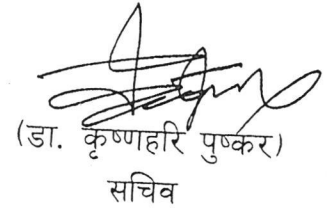 (डा. कृष्णहरि पुष्कर)
सचिव